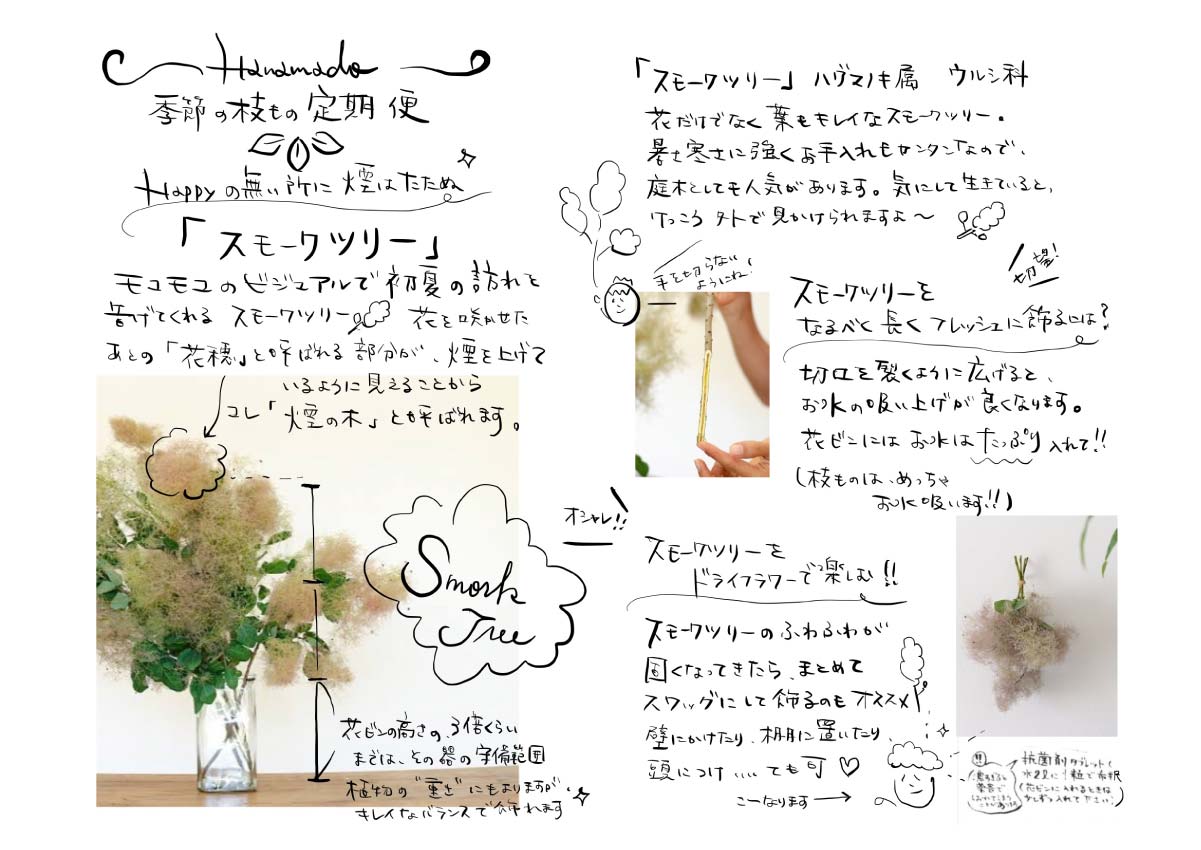 Hanamado
季節の枝もの定期便
Happyの無い所に煙はたたぬ
「スモークツリー」
モコモコのビジュアルで初夏の訪れを
告げてくれる スモークツリー 花を咲かせた
あとの「花穂」と呼ばれる部分が、煙を上げて
いるように見えることから
コレ「煙の木」と呼ばれます。
Smork
Tree
花ビンの高さの、3倍くらい
までは、その器の守備範囲
植物の"重さ"にもよりますが
キレイなバランスで飾れます
「スモークツリー」ハグマノキ属 ウルシ科
花だけでなく葉もキレイなスモークツリー。
暑さ寒さに強くお手入れもカンタンなので、
庭木としても人気があります。気にして生きていると、
けっこう外で見かけられますよ〜
手を切らない
ようにね!
切望!
スモークツリーを
なるべく長くフレッシュに飾るには?
切口を裂くように広げると、
お水の吸い上げが良くなります。
花ビンにはお水はたっぷり入れて!!
(枝ものは、めっちゃ
お水吸います!!)
オシャレ!!
スモークツリーを
ドライフラワーで楽しむ!!
スモークツリーのふわふわが
固くなってきたら、まとめて
スワッグにして飾るのもオススメ
壁にかけたり、棚に置いたり、
頭につけ....ても可♡
こーなります→
!!
抗菌剤タブレット
水2Lに1粒で希釈
(花ビンに入れるときは
少しずつ入れて下さい)